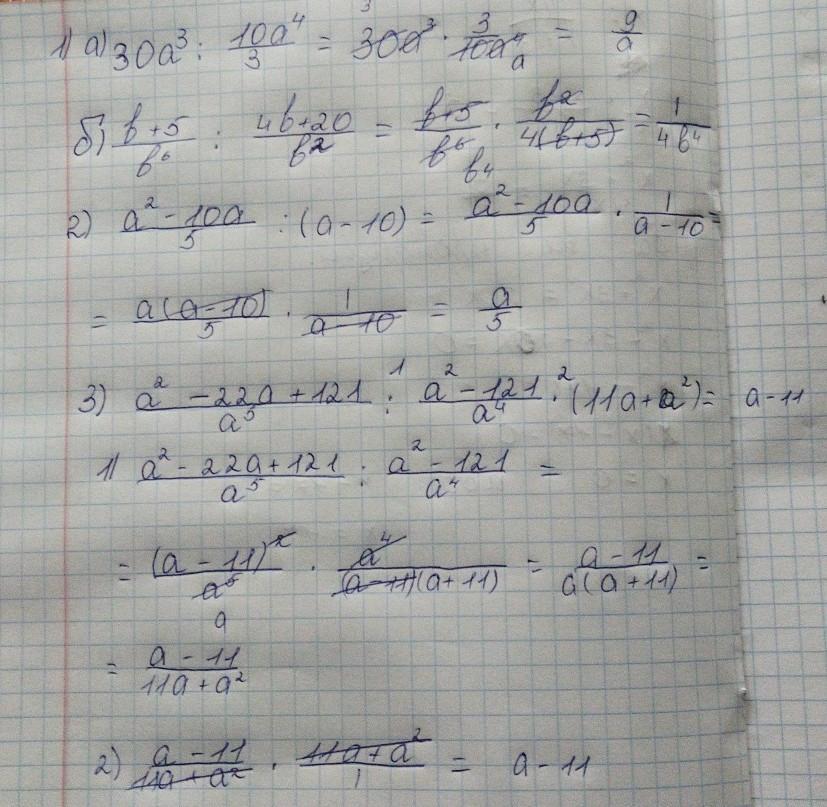 1) а) 30a³ : 10a⁴/3 = 30a³ · 3/10a⁴ = 9/a
б) b+5/b⁶ : 4b+20/b² = b+5/b⁶ · b²/4(b+5) = 1/4b⁴
2) a²-10a/5 : (a-10) = a²-10a/5 · 1/a-10 =
= a(a-10)/5 · 1/a-10 = a/5
3) a²-22a+121/a⁵ : a²-121/a⁴ · (11a+a²) = a-11
1) a²-22a+121/a⁵ : a²-121/a⁴ =
= (a-11)²/a⁵ · a⁴/(a-11)(a+11) = a-11/a(a+11) =
= a-11/11a+a²
2) a-11/11a+a² · 11a+a²/1 = a-11